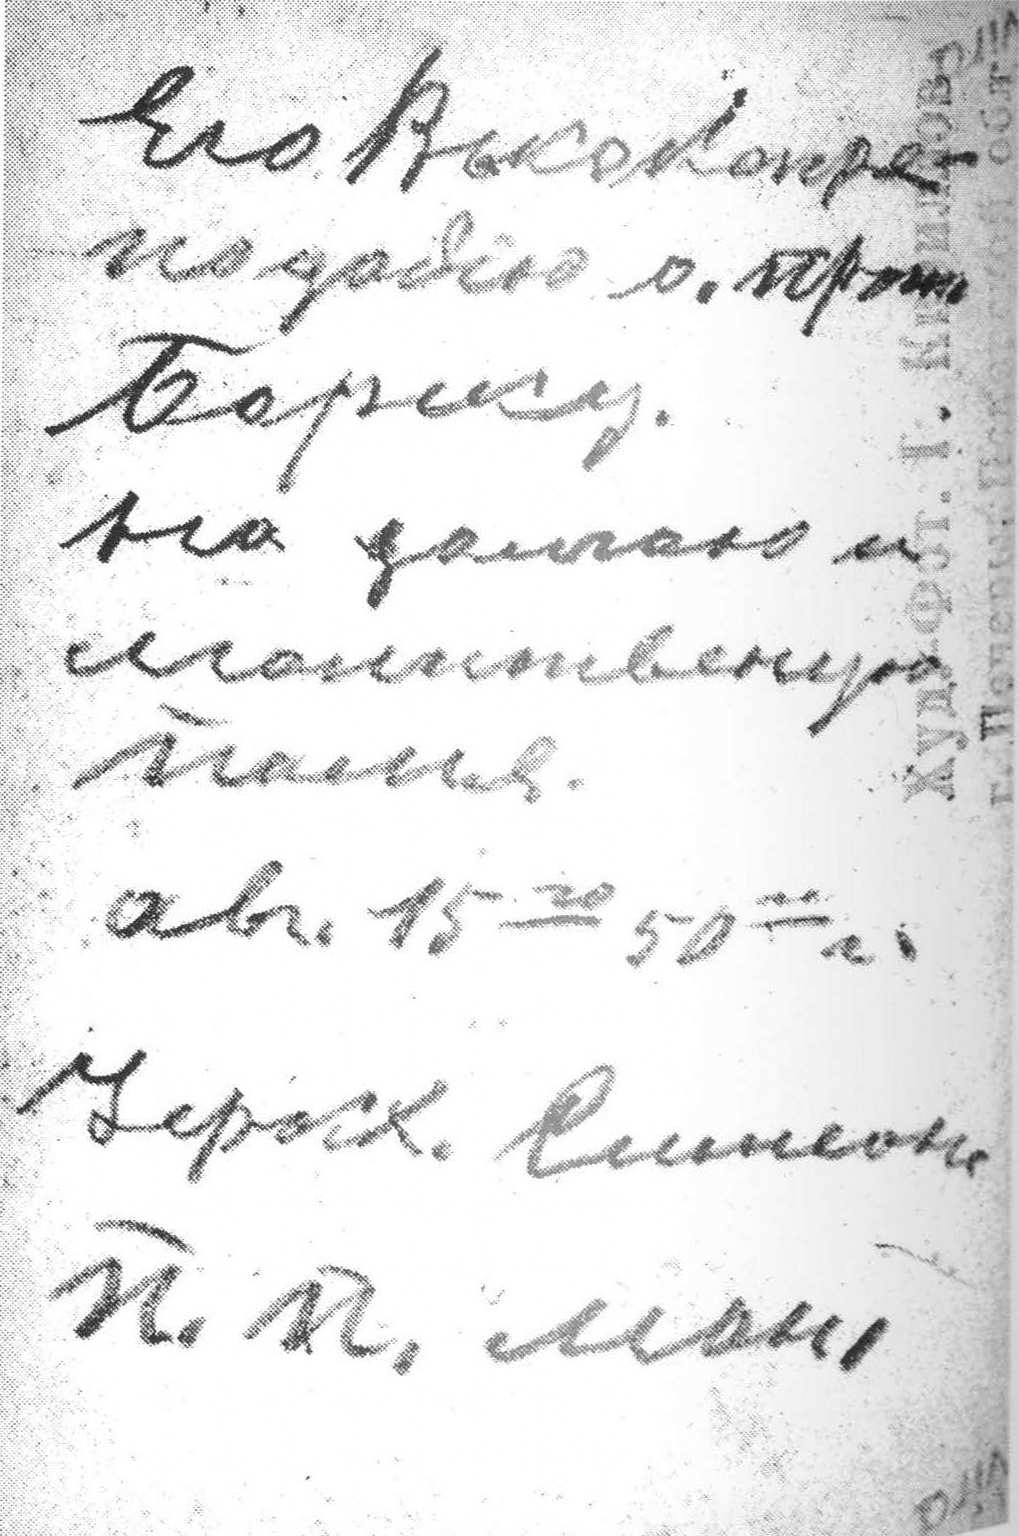 Его Высокопре-
подобію о. прот.
Борису.
на добрую и
молитвенную
память.
авг. 15го 50го г.
Иеросх. Симеон.
П. П. мон,
Худ.-Фот. Г. Кириллов